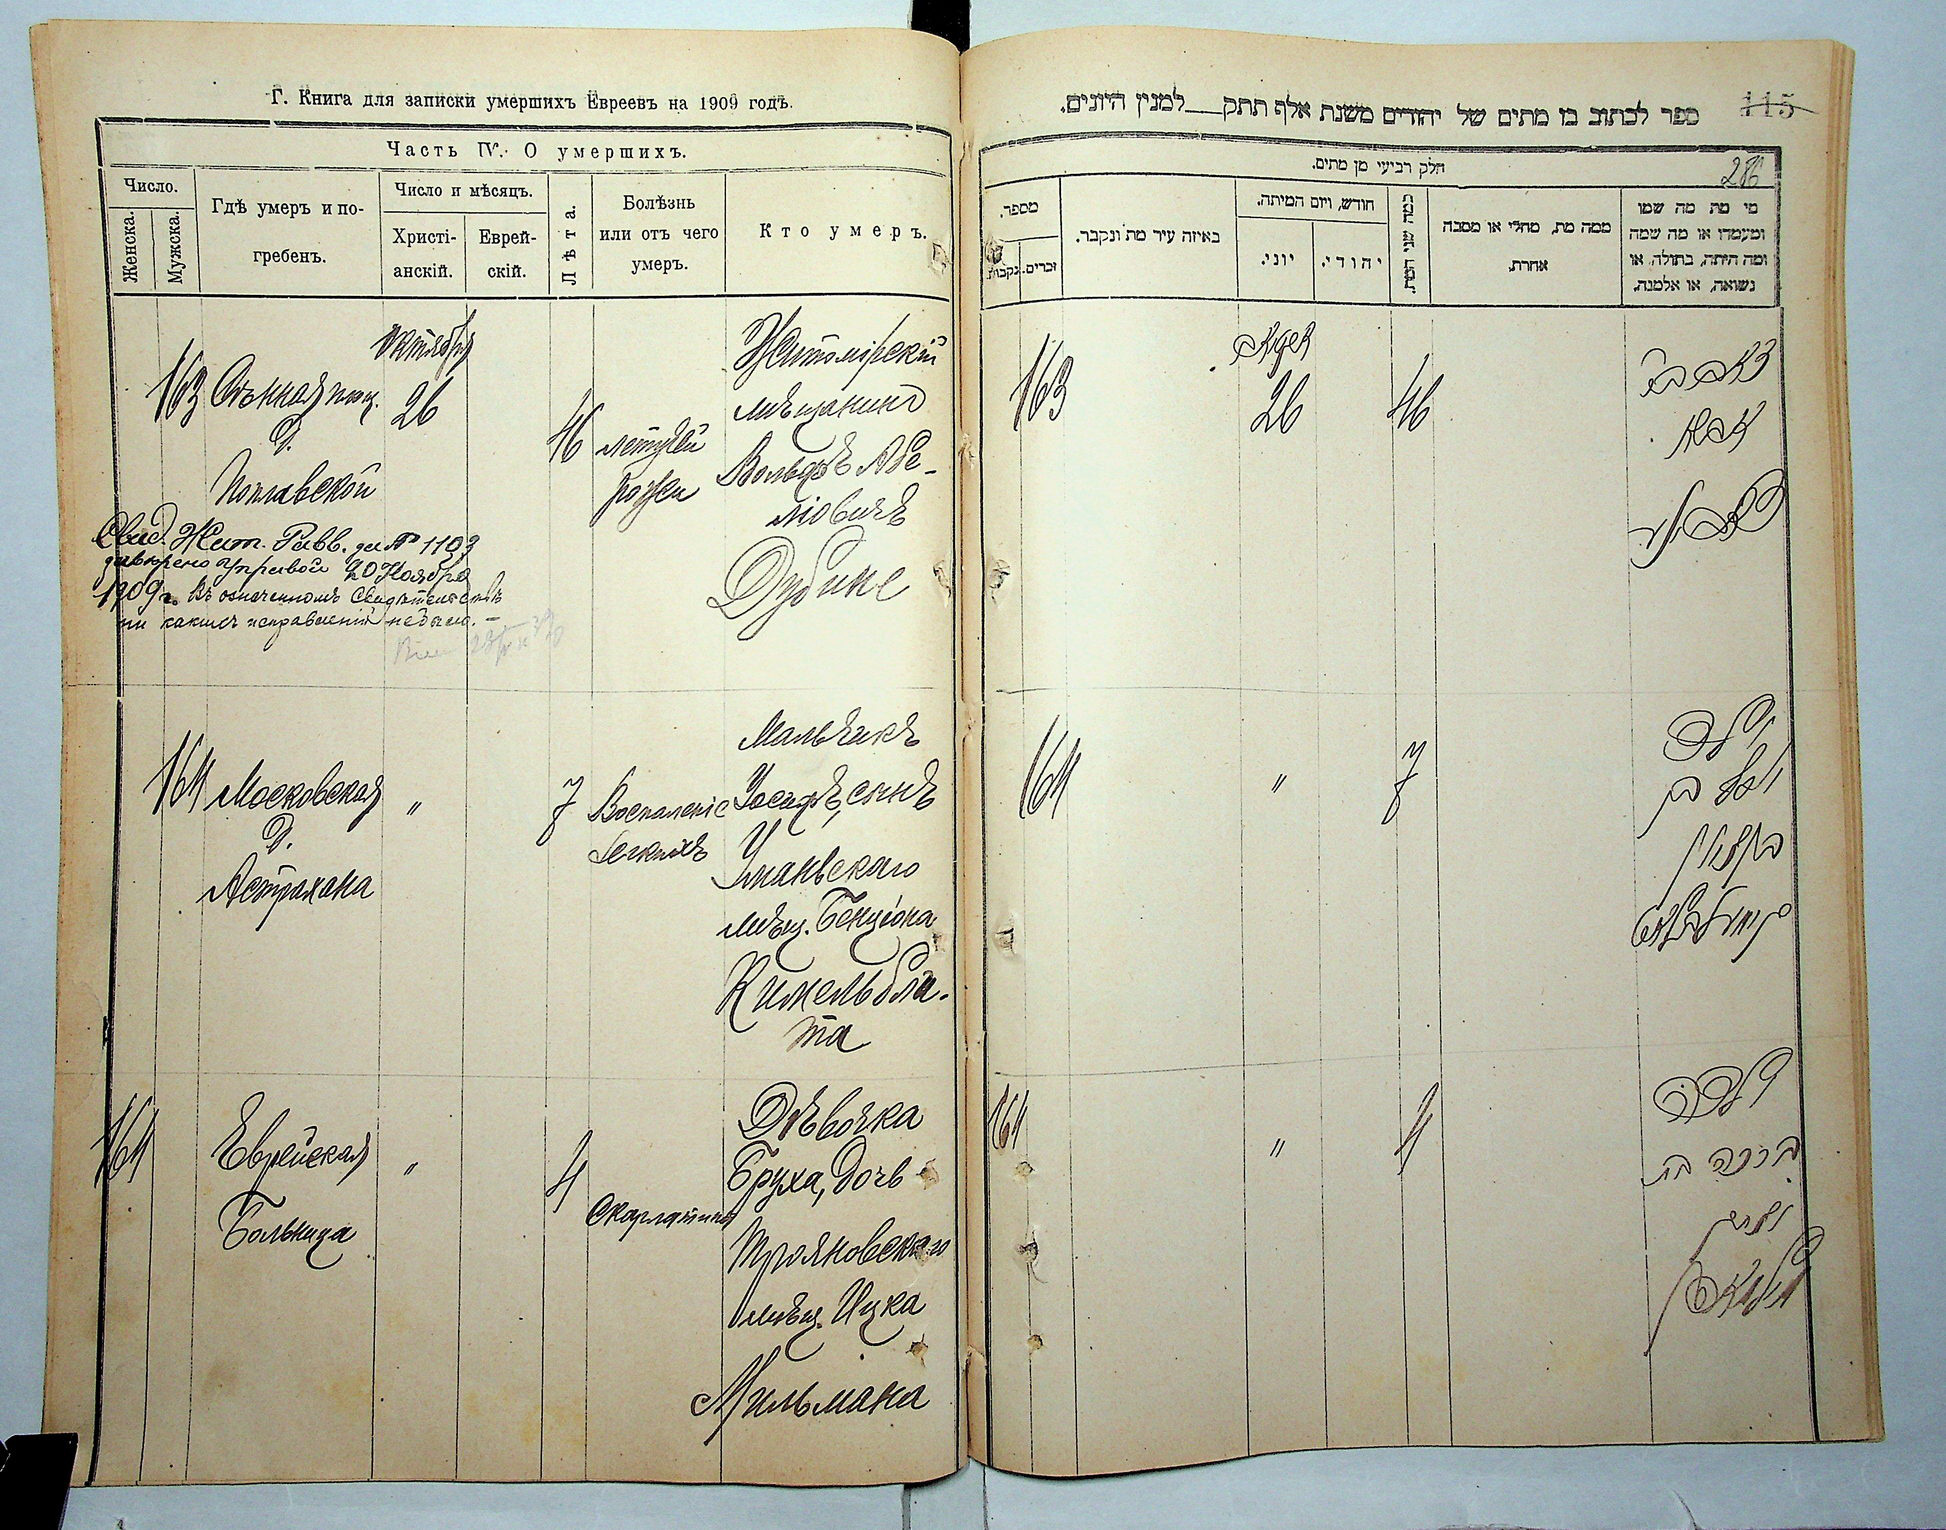 Г. Книга для записки умершихъ Евреевъ на 1909 годъ.
Часть IV. О умершихъ.
Число.
Женска.
Мужска.
Гдѣ умеръ и по-
гребенъ.
Число и мѣсяцъ.
Христі-
анскій.
Еврей-
скій.
Лѣта.
Болѣзнь
или отъ чего
умеръ.
Кто умеръ.
163
Сѣнная площ.
д.
Поплавской
Октября
26
46
летучей
рожи
Житомірскій
мѣщанинъ
Вольфъ Або-
мовичъ
Дубинс
Свид. Жит. Равв. за № 1103
завѣрено Управой 20 Ноября
1909 г. Въ означенномъ Свидѣтельствѣ
ни какихъ исправленій не было.-
164
Московская
д.
Астрахана
"
7
Воспаленіе
легкихъ
Мальчикъ
Іосифъ, сынъ
Уманьского
мѣщ. Бенціона
Кимельбла-
та
164
Еврейская
Больница
"
4
Скарлатина
Дѣвочка
Бруха, дочь
Трояновского
мѣщ. Ицка
Мильмана
115
ספר לכתוב בו מתים של יהודים משנת אלף תתק___למנין היונים.
286
חלק רביעי מן מתים.
מספר.
נקבות.
זכרים.
באיזה עיר מת ונקבר.
חודש, ויום המיתה.
יוני.
יהודי.
כמה שני המת.
ממה מת, מחלי או מסבה
אחרת.
מי מת מה שמו
ומעמדו או מה שמה
ומה היתה, בתולה, או
נשואה, או אלמנה.
163
26
46
164
"
7
ילד
יוסף בן
בנציון
164
"
4
ילדה
ברכה בת